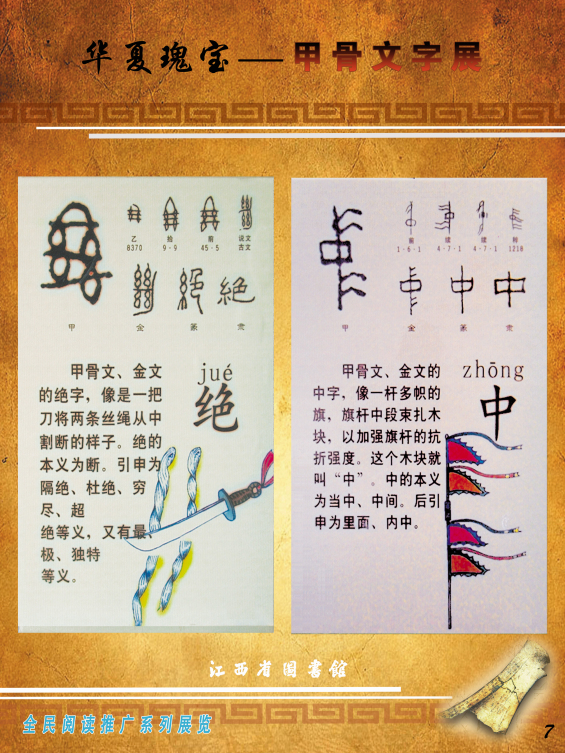 华夏瑰宝—甲骨文字展
乙 拾 前 说文
8370 9·9 45·5 古文
甲 金 篆 隶
jué
绝
甲骨文、金文
的绝字，像是一把
刀将两条丝绳从中
割断的样子。绝的
本义为断。引申为
隔绝、杜绝、穷
尽、超
绝等义，又有最、
极、独特
等义。
前 续 续 粹
1·6·1 4·7·1 4·7·1 1218
甲 金 篆 隶
zhōng
中
甲骨文、金文的
中字，像一杆多帜的
旗，旗杆中段束扎木
块，以加强旗杆的抗
折强度。这个木块就
叫“中”。中的本义
为当中、中间。后引
申为里面、内中。
江西省图書館
全民阅读推广系列展览
7